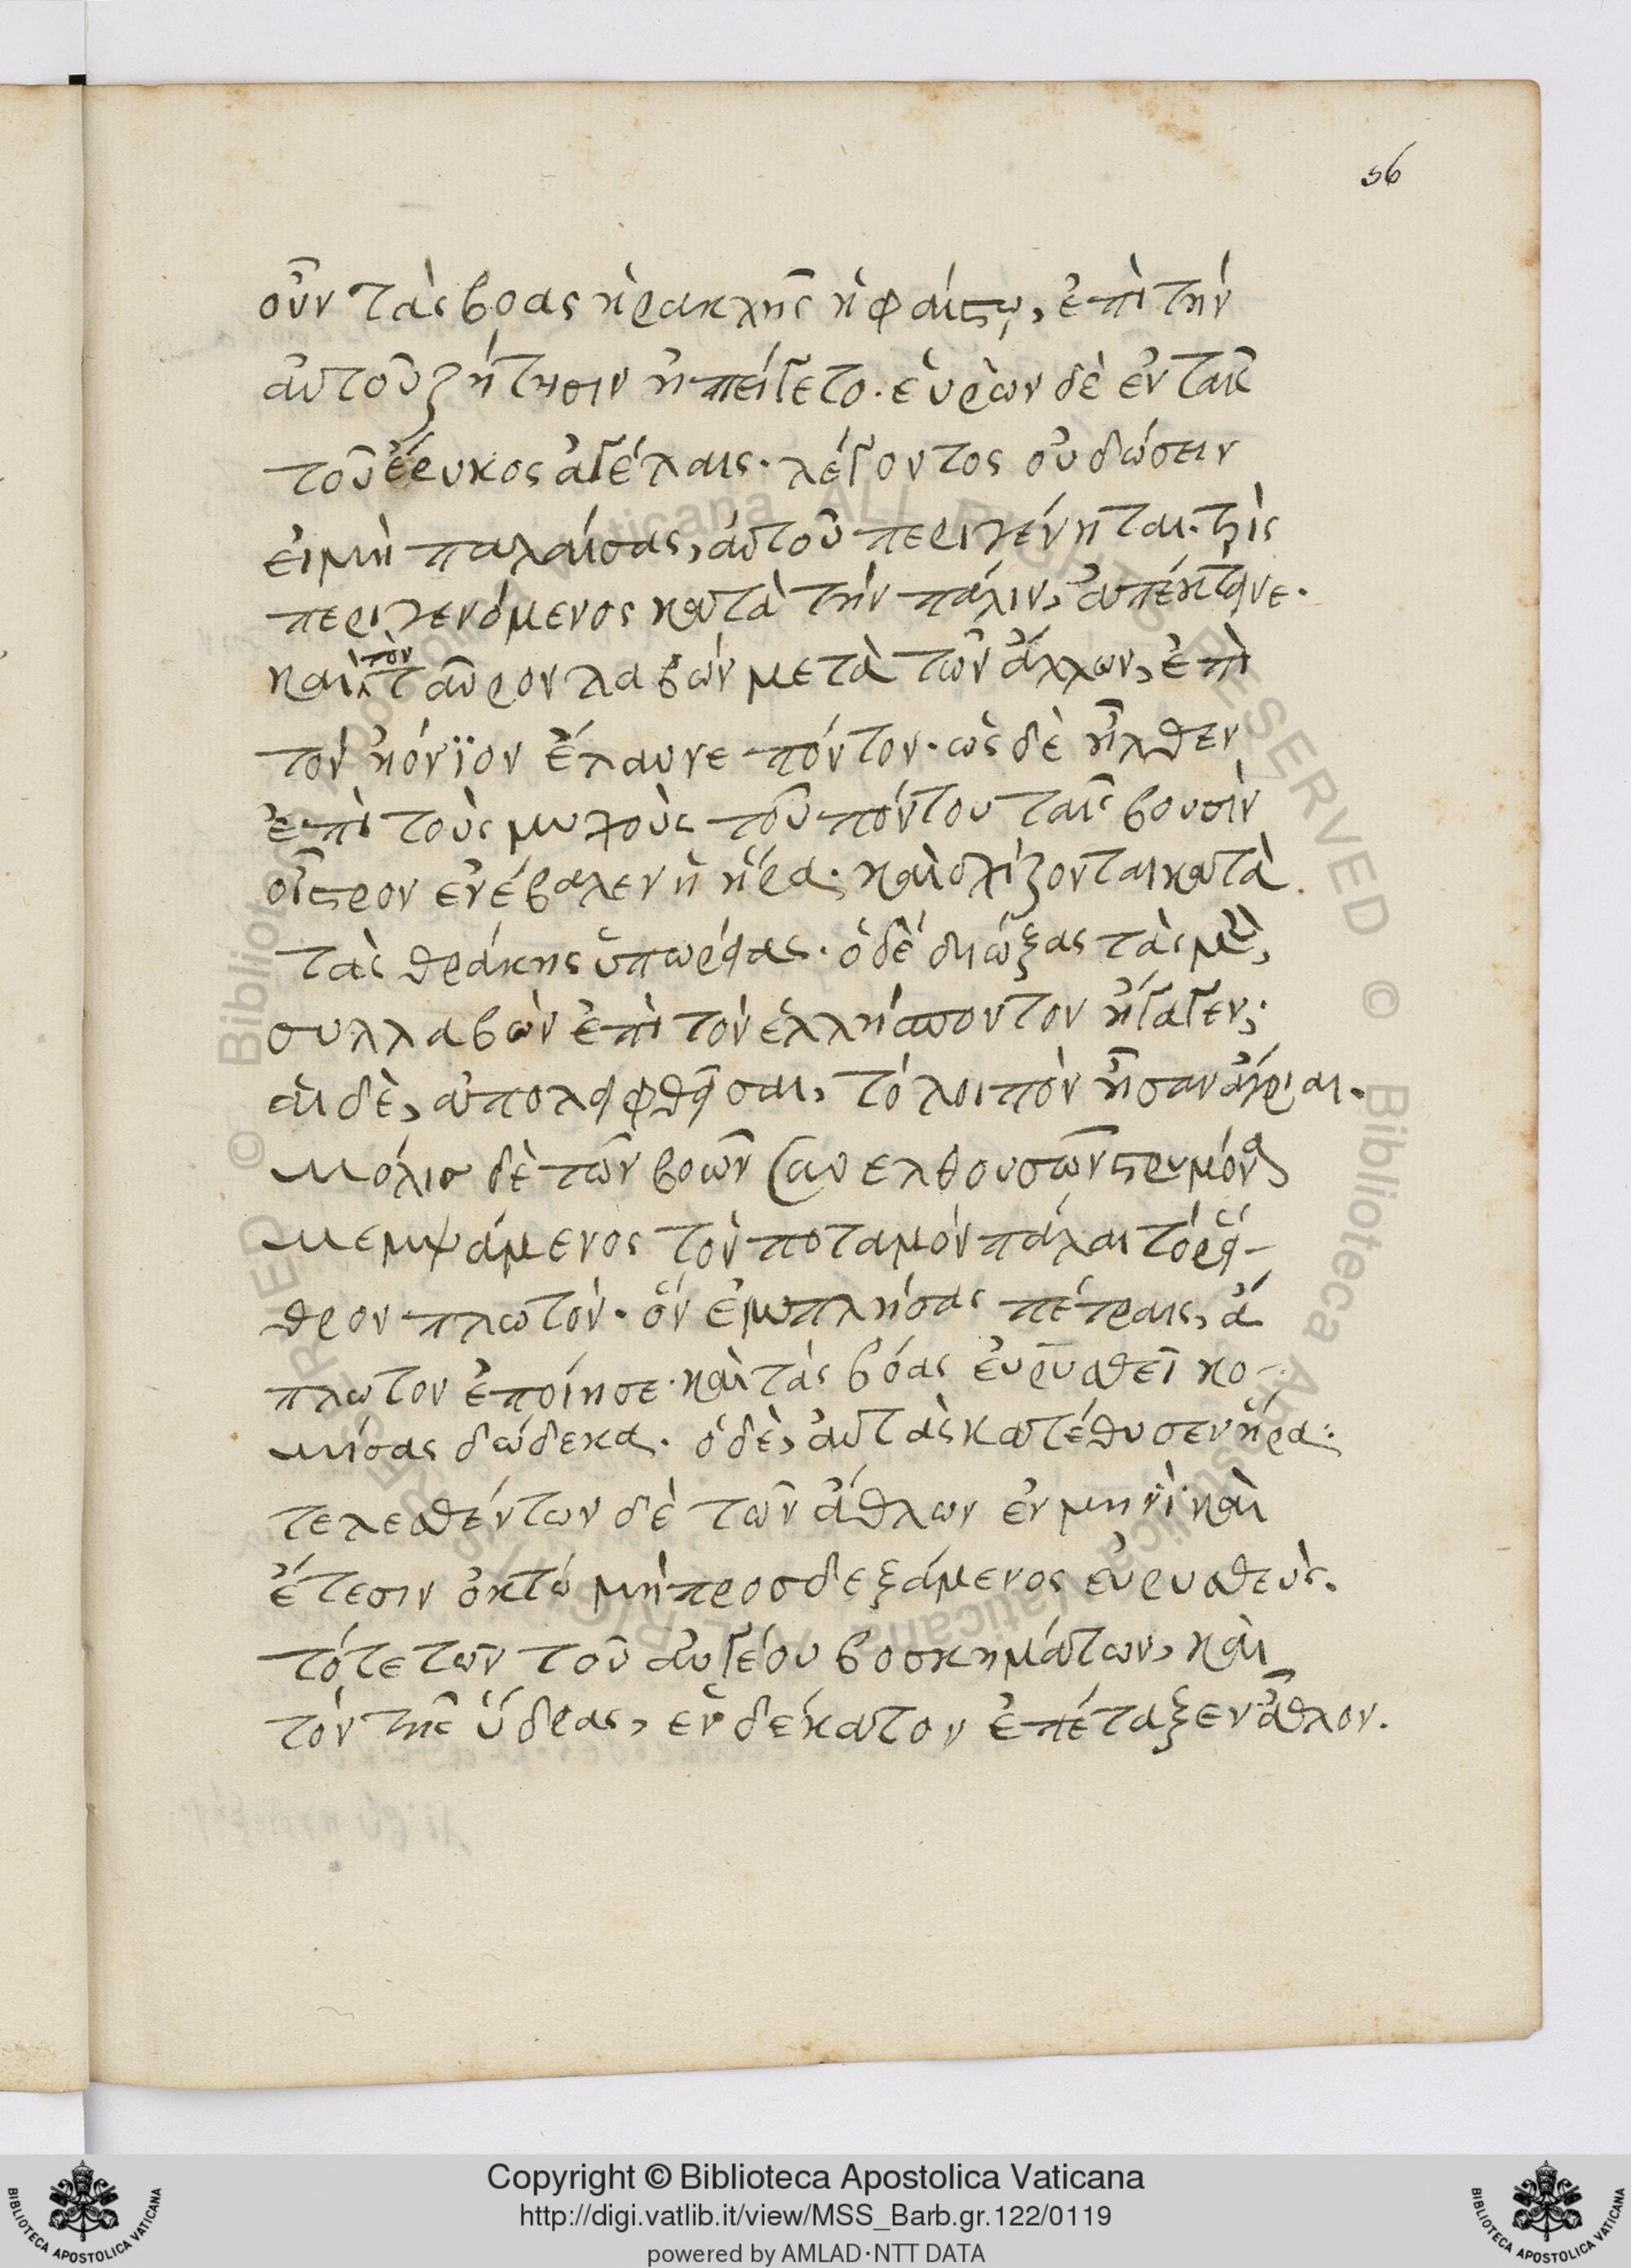 56
οὖν τὰς βοας ἡρακλῆς ἡφαίστῳ, ἐπὶ τὴν
αὐτοῦ ζήτησιν ἠπείγετο. εὑρὼν δὲ ἐν ταῖς
τοῦ ἔρυκος ἀγέλαις. λέγοντος οὐ δώσειν
εἰ μὴ παλαίσας, αὐτοῦ περιγένηται. τρὶς
περιγενόμενος κατὰ τὴν πάλιν, ἀπέκτεινε.
καὶ τὸν ταῦρον λαβὼν μετὰ τῶν ἄλλων, ἐπὶ
τὸν ἠόνϊον ἔλαυνε πόντον. ὡς δὲ ἦλθεν
ἐπὶ τοὺς μυχοὺς τοῦ πόντου ταῖς βουσὶν
οἶστρον ἐνέβαλεν ἡ ἥρα. καὶ σχίζονται κατὰ
τὰς θράκης ὑπωρείας. ὁ δὲ διώξας τὰς μὲν,
συλλαβὼν ἐπὶ τὸν ἑλλήσποντον ἤγαγεν.
αἱ δὲ, ἀπολειφθεῖσαι, τὸ λοιπὸν ἦσαν ἄγριαι.
μόλις δὲ τῶν βοῶν συνελθουσῶν στρυμόνα
μεμψάμενος τὸν ποταμὸν πάλαι τὸ ῥεῖ-
θρον πλωτὸν. ὃν ἐμπλήσας πέτραις, ἄ
πλωτον ἐποίησε. καὶ τὰς βόας εὐρυσθεῖ κο-
μίσας δώδεκα. ὁ δὲ, αὐτὰς κατέθυσεν ἥρα:
τελεσθέντων δὲ τῶν ἄθλων ἐν μηνὶ καὶ
ἔτεσιν ὀκτώ μὴ προσδεξάμενος εὐρυσθεὺς.
τότε τῶν τοῦ αὐγέου βοσκημάτων, καὶ
τὸν τῆς ὕδρας, ἑνδέκατον ἐπέταξεν ἆθλον.
Copyright © Biblioteca Apostolica Vaticana
http://digi.vatlib.it/view/MSS_Barb.gr.122/0119
powered by AMLAD·NTT DATA